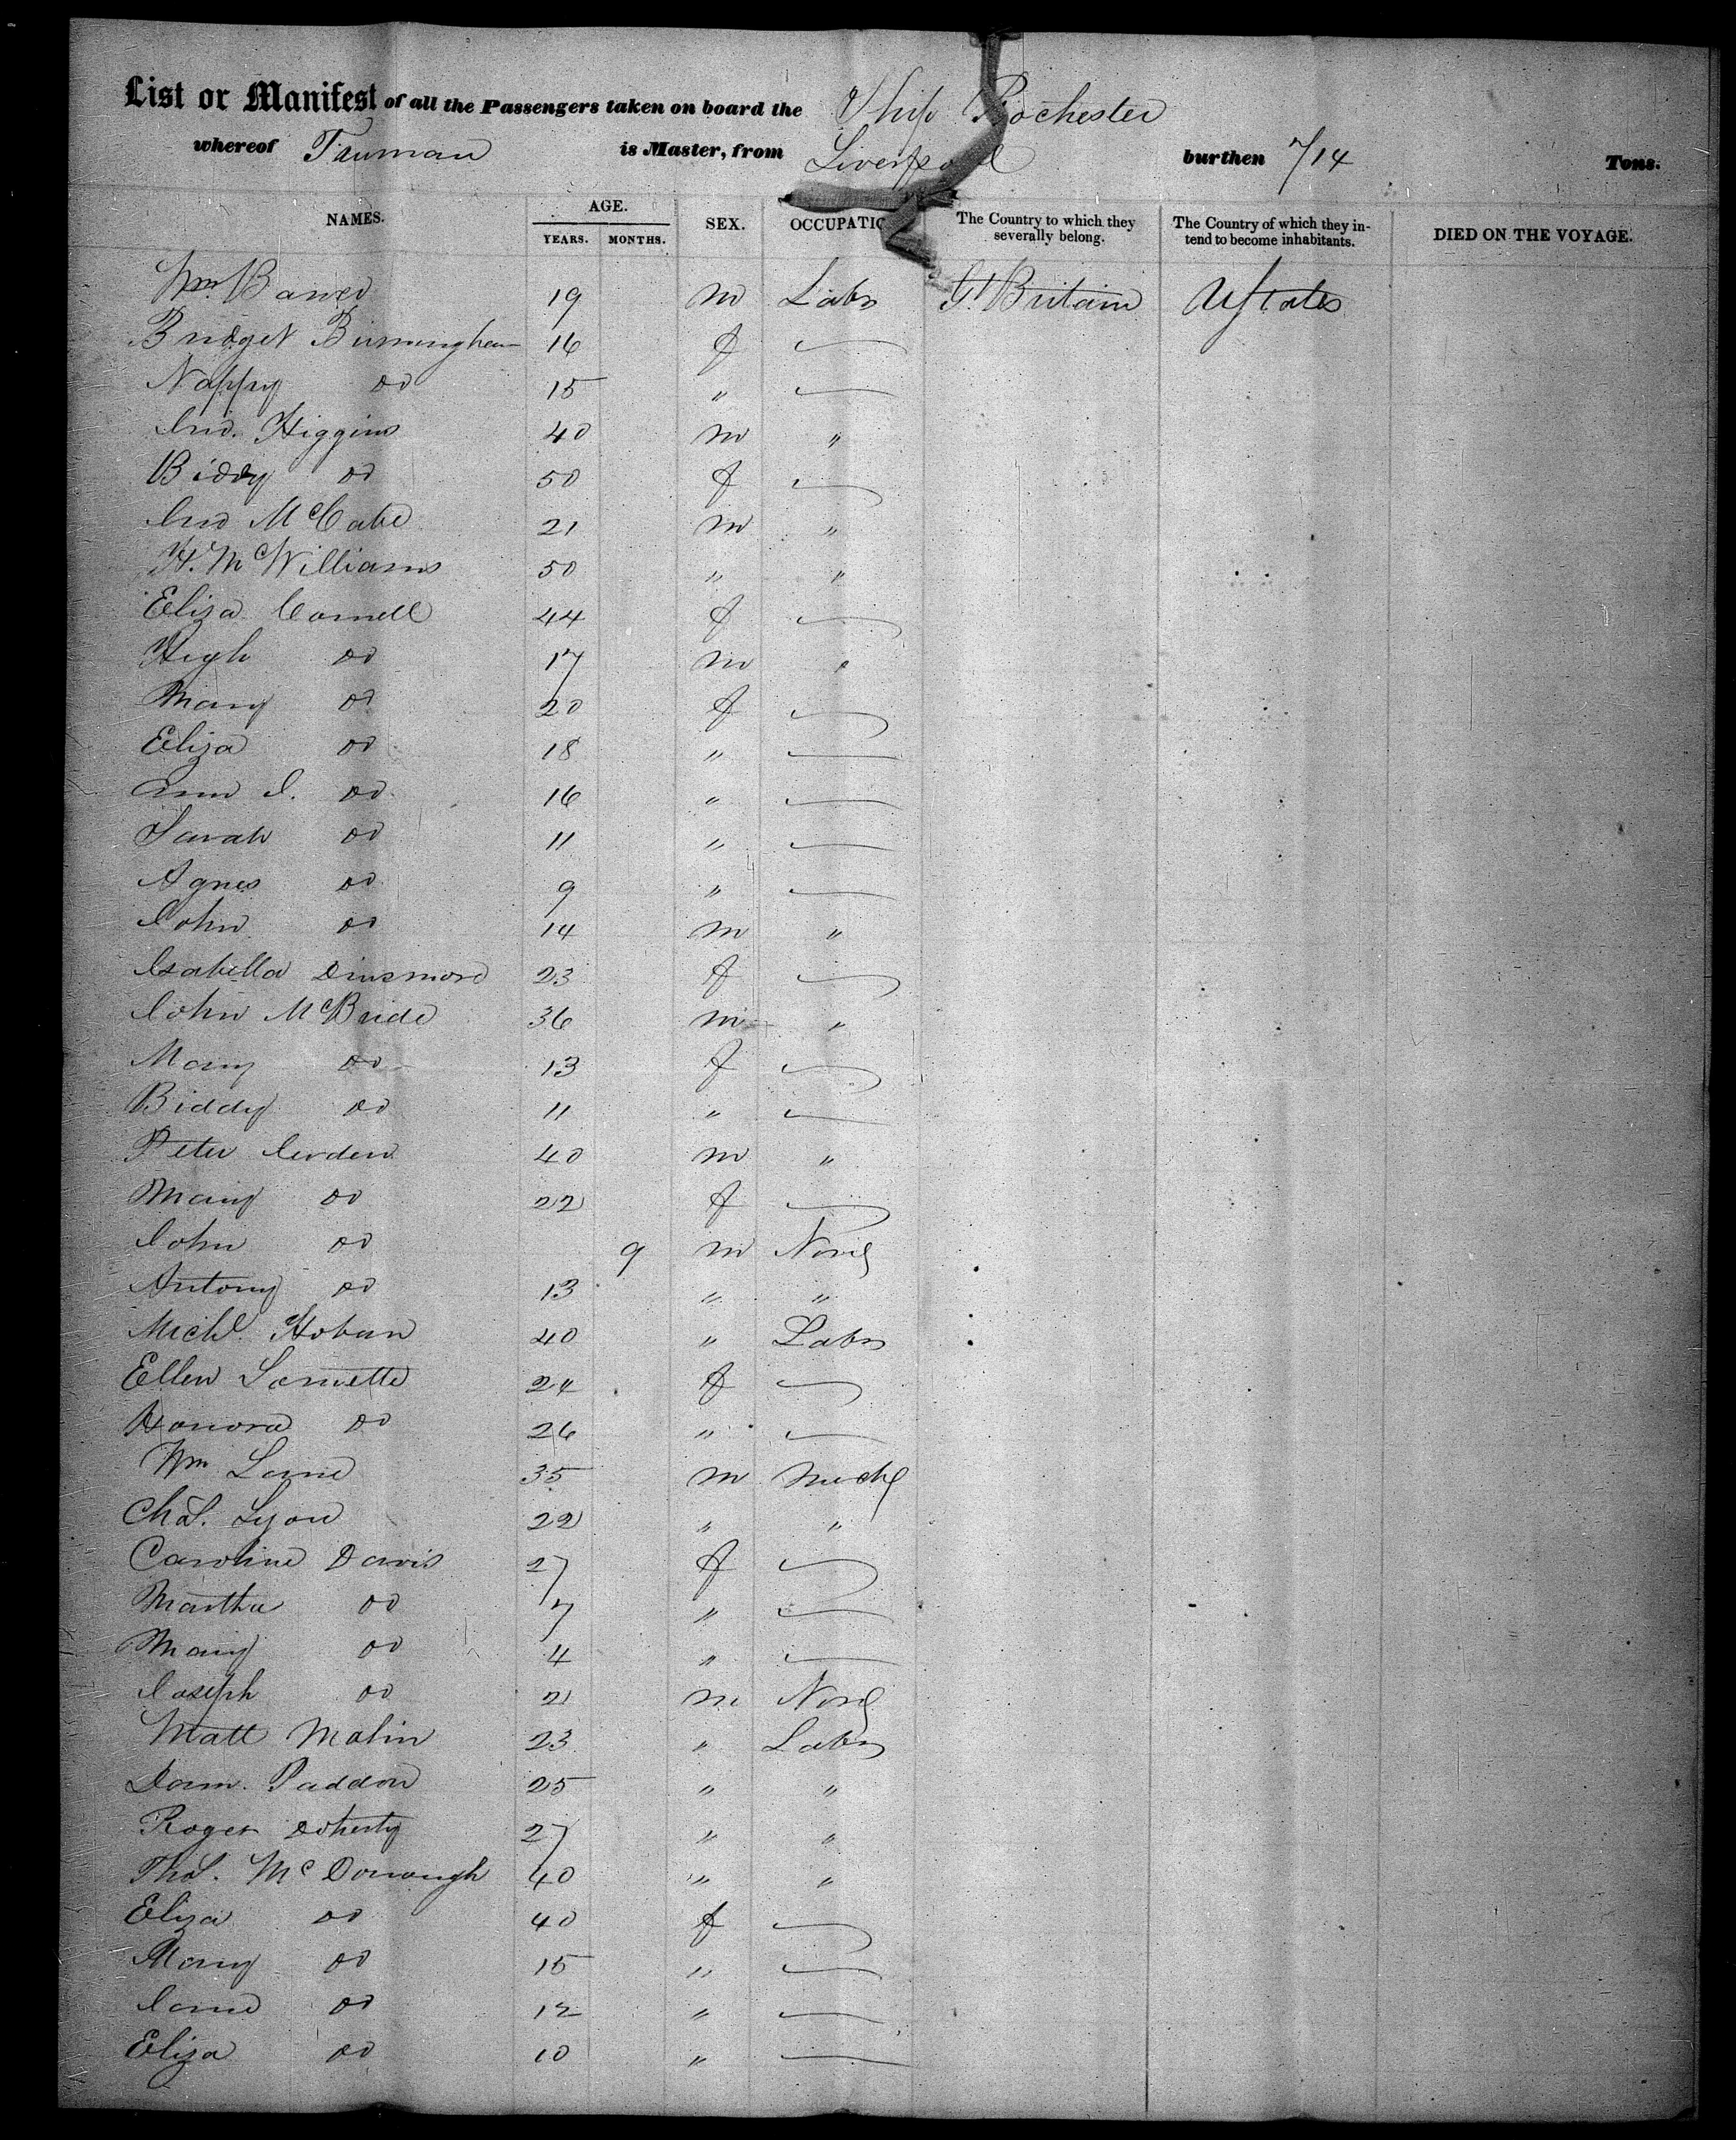 List or Manifest of all the Passengers taken on board the Ship Rochester
whereof Truman is Master, from Liverpool burthen 714 Tons.
NAMES. AGE. YEARS. MONTHS. SEX. OCCUPATIO The Country to which they severally belong. The Country of which they intend to become inhabitants. DIED ON THE VOYAGE.
Wm. 19 m Labr Gt Britain U States
Bridget Birmingham 16 f
Nappy do 15 "
Jno. Higgins 40 m "
Biddy do 50 f
Jno McCabe 21 m "
H. McWilliams 50 " "
Eliza Connell 44 f
Hugh do 17 m "
Mary do 20 f
Eliza do 18 "
Ann J. do 16 "
Sarah do 11 "
Agnes do 9 "
John do 14 m "
Isabella Dinsmore 23 f
John McBride 36 m "
Mary do 13 f
Biddy do 11 "
Peter 40 m "
Mary do 22 f
John do 9 m None
Antony do 13 " "
Michl. Hoban 40 " Labr
Ellen 24 f
Honora do 26 "
Wm Lane 35 m Mechc
Chas. Lyon 22 " "
Caroline Davis 27 f
Martha do 7 "
Mary do 4 "
Joseph do 2 m None
Matt Molin 23 " Labr
Danl. Paddon 25 " "
Roger Doherty 27 " "
Thos. McDonough 40 " "
Eliza do 40 f
Mary do 15 "
Jane do 12 "
Eliza do 10 "